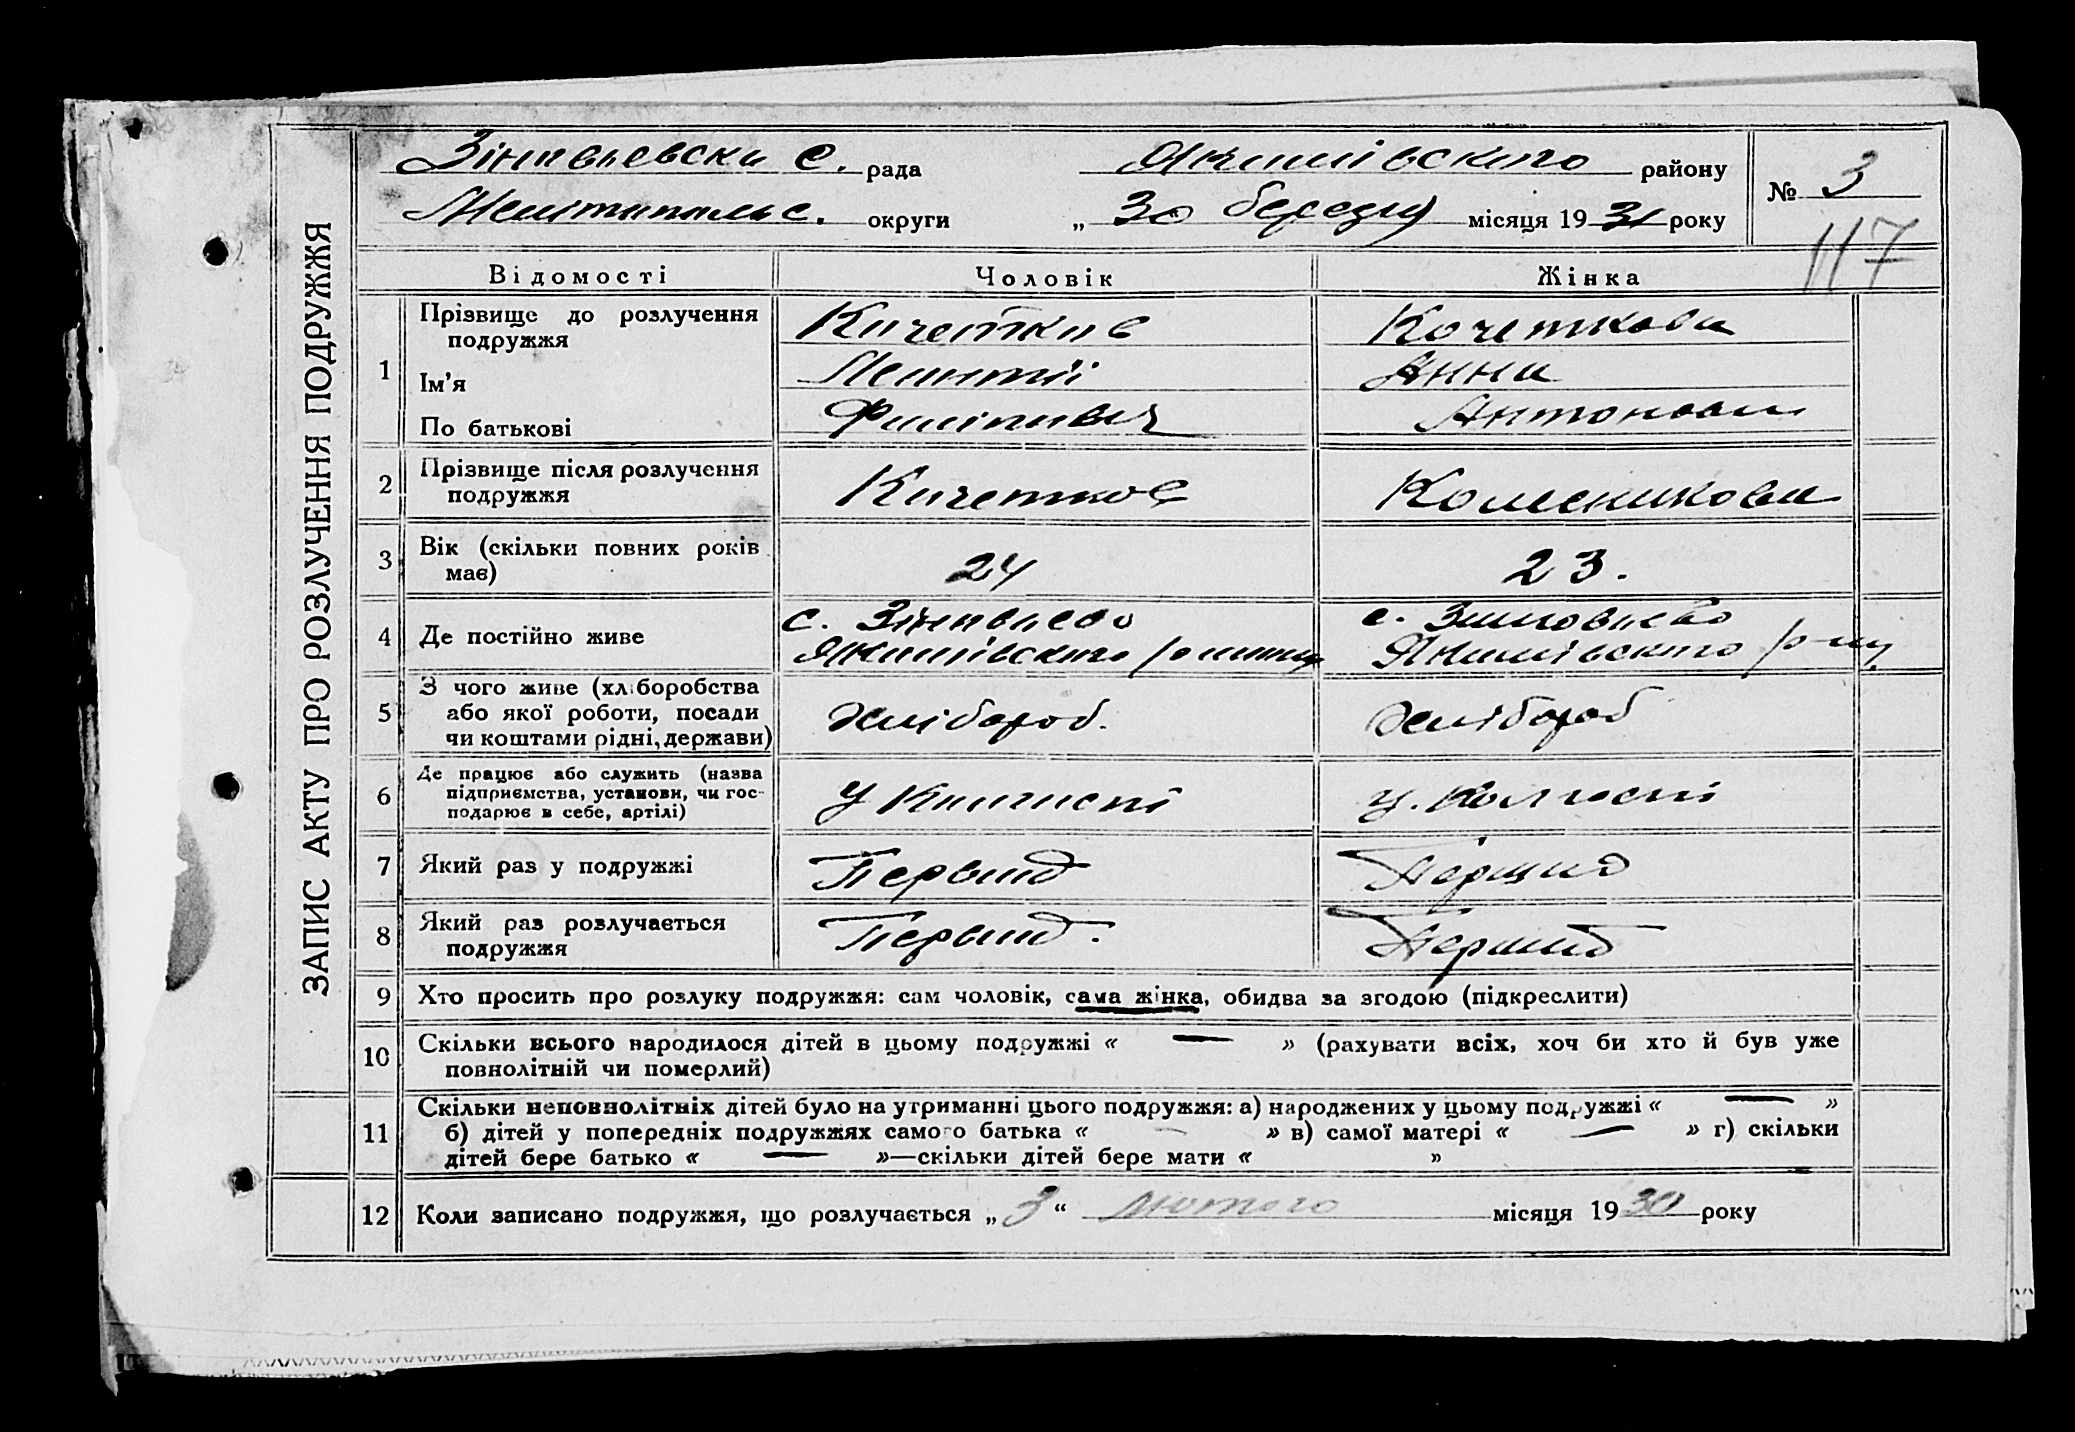 ЗАПИС АКТУ ПРО РОЗЛУЧЕННЯ ПОДРУЖЖЯ
Зінивьевска с. рада Якимівского району
Мелітопольс. округи „ 30 березня місяця 1931 року
№ 3
117
Відомості Чоловік Жінка
1 Прізвище до розлучення подружжя Кочетков Кочеткова
Ім’я Леонтій Анна
По батькові Филіпович Антонова
2 Прізвище після розлучення подружжя Кочетков Колесникова
3 Вік (скільки повних років має) 24 23.
4 Де постійно живе с. Зінивьево с. Зиновьево
Якимівского району Якимівского р-ну
5 З чого живе (хліборобства
або якої роботи, посади Хлібороб. Хлібороб
чи коштами рідні, держави)
6 Де працює або служить (назва
підприємства, установи, чи гос- у Колгоспі у. Колгоспі
подарює в себе, артілі)
7 Який раз у подружжі Первий Перший
8 Який раз розлучається подружжя Первий. Перший
9 Хто просить про розлуку подружжя: сам чоловік, сама жінка, обидва за згодою (підкреслити)
10 Скільки всього народилося дітей в цьому подружжі « — » (рахувати всіх, хоч би хто й був уже
повнолітній чи померлий)
11 Скільки неповнолітніх дітей було на утриманні цього подружжя: а) народжених у цьому подружжі « — »
б) дітей у попередніх подружжях самого батька « — » в) самої матері « — » г) скільки
дітей бере батько « — »—скільки дітей бере мати « »
12 Коли записано подружжя, що розлучається „ 3 “ лютого місяця 1930 року